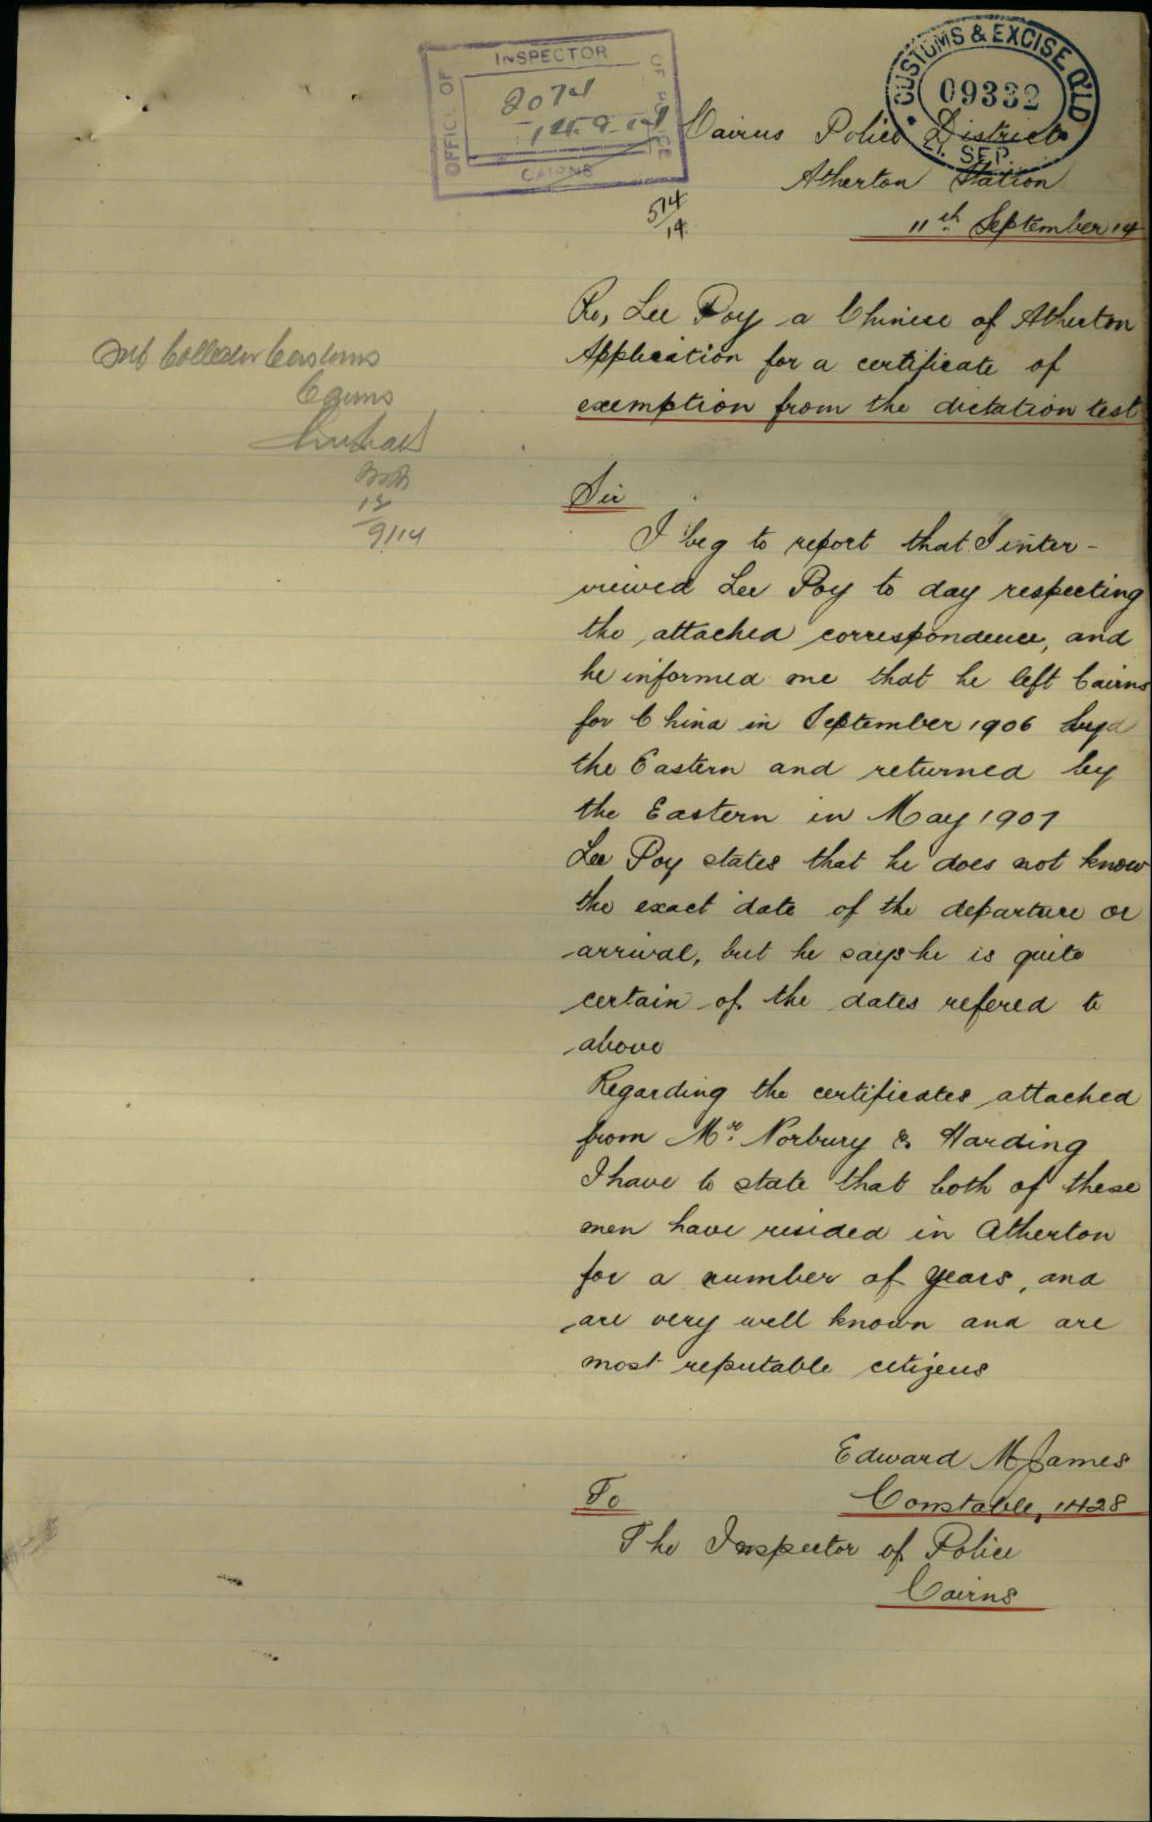 OFFICE OF INSPECTOR OF POLICE
2074
CAIRNS
CUSTOMS & EXCISE Q'LD
09332
21. SEP.
Cairns Police District
Atherton Station
514/14
11th September 14
Re, Lee Poy a Chinese of Atherton
Application for a certificate of
exemption from the dictation test
Sub Collector Customs
Cairns
12/9/14
Sir
I beg to report that I inter-
viewed Lee Poy to day respecting
the attached correspondence, and
he informed me that he left Cairns
for China in September 1906 by
the Eastern and returned by
the Eastern in May 1907
Lee Poy states that he does not know
the exact date of the departure or
arrival, but he says he is quite
certain of the dates refered to
above
Regarding the certificates attached
from Mr. Norbury & Harding
I have to state that both of these
men have resided in Atherton
for a number of years, and
are very well known and are
most reputable citizens
Edward M James
Constable, 1428
To
The Inspector of Police
Cairns